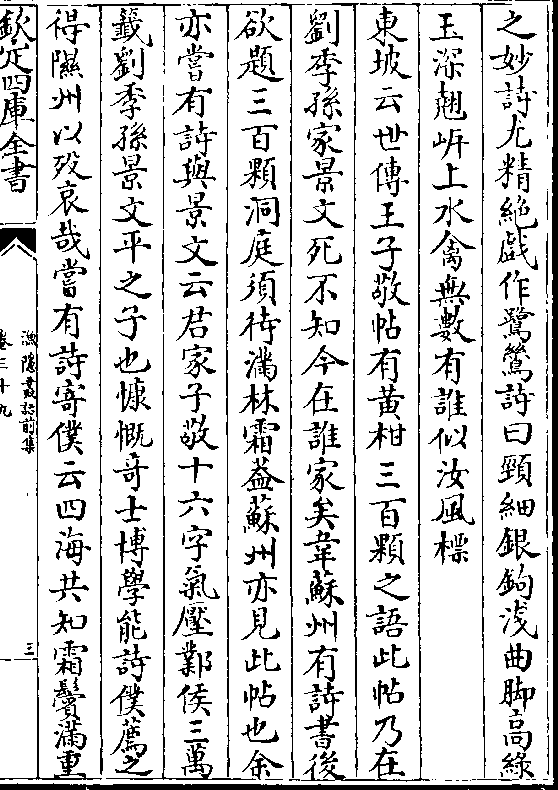 之妙詩尤精絶戯作鷺鷥詩曰頸細銀鉤淺曲脚高綠
玉深翹岸上水禽無數有誰似汝風標
東坡云世傳王子敬帖有黄柑三百顆之語此帖乃在
劉季孫家景文死不知今在誰家矣韋蘇州有詩書後
欲題三百顆洞庭須待滿林霜葢蘇州亦見此帖也余
亦嘗有詩與景文云君家子敬十六字氣壓鄴侯三萬
籖劉季孫景文平之子也慷慨奇士博學能詩僕薦之
得隰州以殁哀哉嘗有詩寄僕云四海共知霜鬢滿重
欽定四庫全書
漁隱叢話前集
卷三十九
三